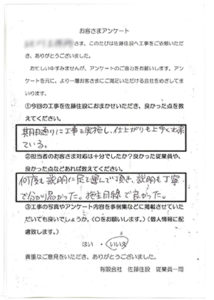 お客さまアンケート
さま、このたびは佐藤住設へ工事をご依頼いただき、
ありがとうございました。
おそれいりますが、アンケートのご協力をお願いします。アン
ケートを元に、より一層お客さまにご満足いただける会社をめざしてま
いります。
①今回の工事を佐藤住設におまかせいただき、良かった点を教
えてください。
期日通りに工事を実施し、仕上がりも上々と出来
ている。
②担当者のお客さま対応は十分でしたか？良かった従業員や、
良かった点などあれば教えてください。
何度も説明に足を運んで頂き、説明も丁寧
で分かり易かった。施主目線で良かった。
③工事の写真やアンケート内容を事例集などに掲載させていた
だいても良いでしょうか。（○をお願いします。）（個人情報に配
慮致します。）
はい ・ いいえ
貴重なご意見をいただき、ありがとうございました。
有限会社 佐藤住設 従業員一同